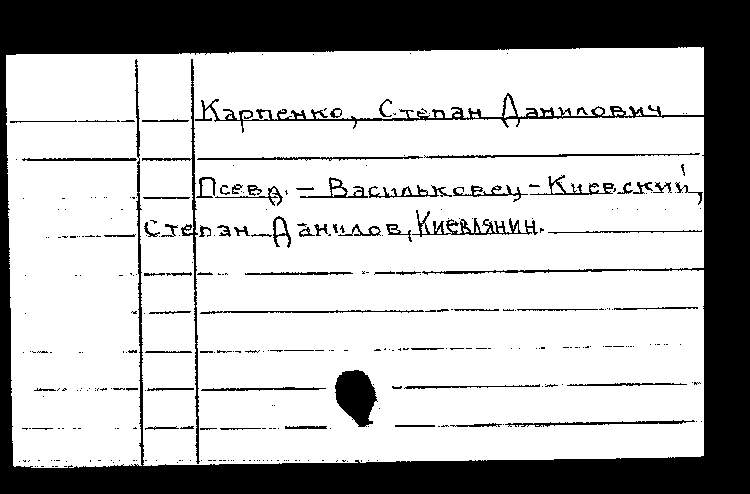 Карпенко, Степан Данилович
Псевд. – Васильковец-Киевский,
Степан Данилов, Киевлянин.